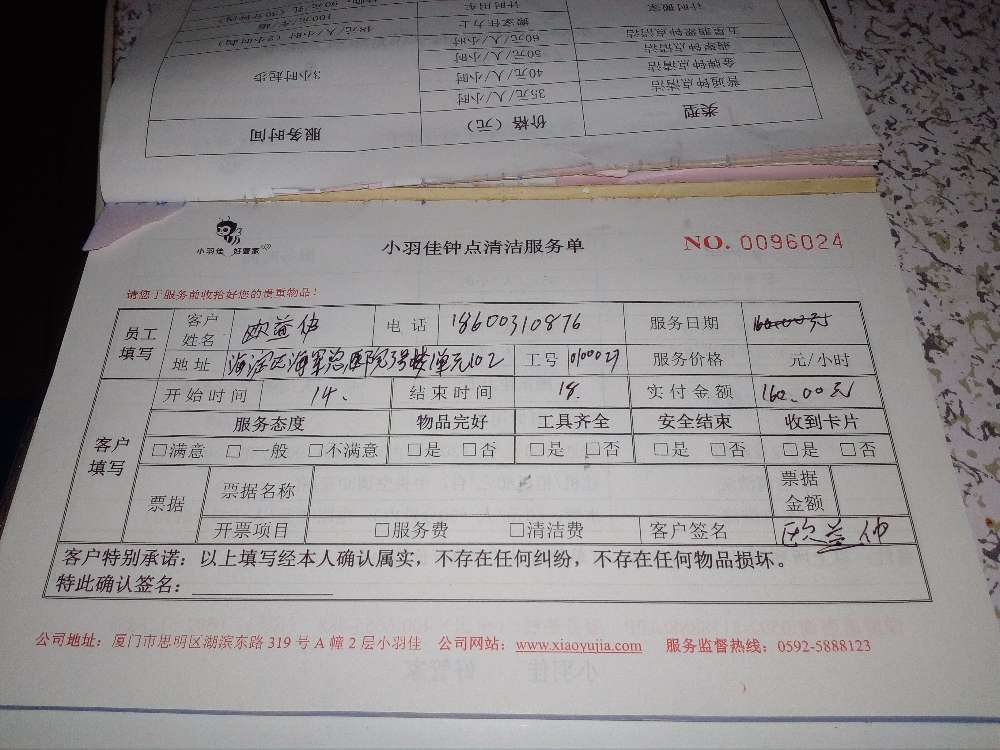 类型 价格（元） 服务时间
普通钟点清洁 35元/人/小时 3小时起步
金牌钟点清洁 40元/人/小时
翡翠钟点清洁 50元/人/小时
五星翡翠钟点清洁 60元/人/小时
计时搬家
小羽佳 好管家
小羽佳钟点清洁服务单
NO. 0096024
请您于服务前收拾好您的贵重物品！
员工填写 客户姓名 欧益伯 电话 18600310876 服务日期 160.00元
地址 海淀区海军总医院3号楼1单元102 工号 0100027 服务价格 元/小时
客户填写 开始时间 14. 结束时间 18. 实付金额 160.00元
服务态度 物品完好 工具齐全 安全结束 收到卡片
□满意 □一般 □不满意 □是 □否 □是 □否 □是 □否 □是 □否
票据 票据名称 票据金额
开票项目 □服务费 □清洁费 客户签名 欧益伯
客户特别承诺：以上填写经本人确认属实，不存在任何纠纷，不存在任何物品损坏。
特此确认签名：
公司地址：厦门市思明区湖滨东路319号A幢2层小羽佳 公司网站：www.xiaoyujia.com 服务监督热线：0592-5888123